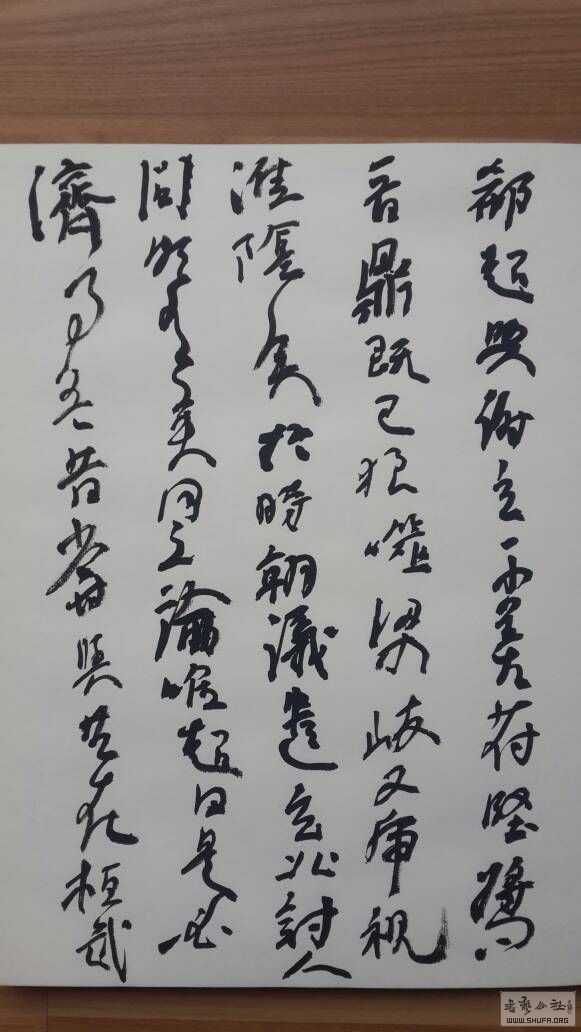 郗超與謝玄不善苻堅將問
晉鼎既已狼噬梁岐又虎視
淮陰矣於時朝議遣玄北討人
間頗有異同之論唯超曰是必
濟事吾昔嘗與共在桓武
書藝公社
WWW.SHUFA.ORG